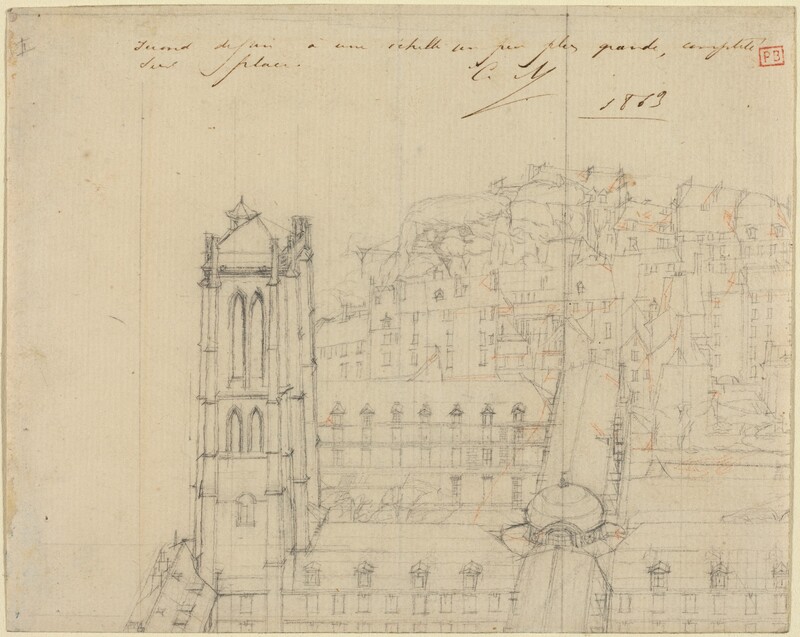 Second dessin à une échelle un peu plus grande, complété
Sur place.
C. M
1863
PB